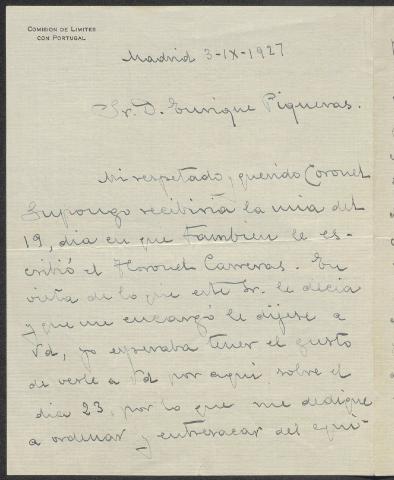 COMISION DE LIMITES
CON PORTUGAL
Madrid 3-IX-1927
Sr. D. Enrique Piqueras.
Mi respetado y querido Coronel
Supongo recibiría la mia del
19, dia en que tambien le es-
cribió el Coronel Carreras. En
vista de lo que este Sr. le decia
y que me encargó le dijese a
Vd, yo esperaba tener el gusto
de verle a Vd por aqui sobre el
dia 23, por lo que me dediqué
a ordenar y entresacar del equi-